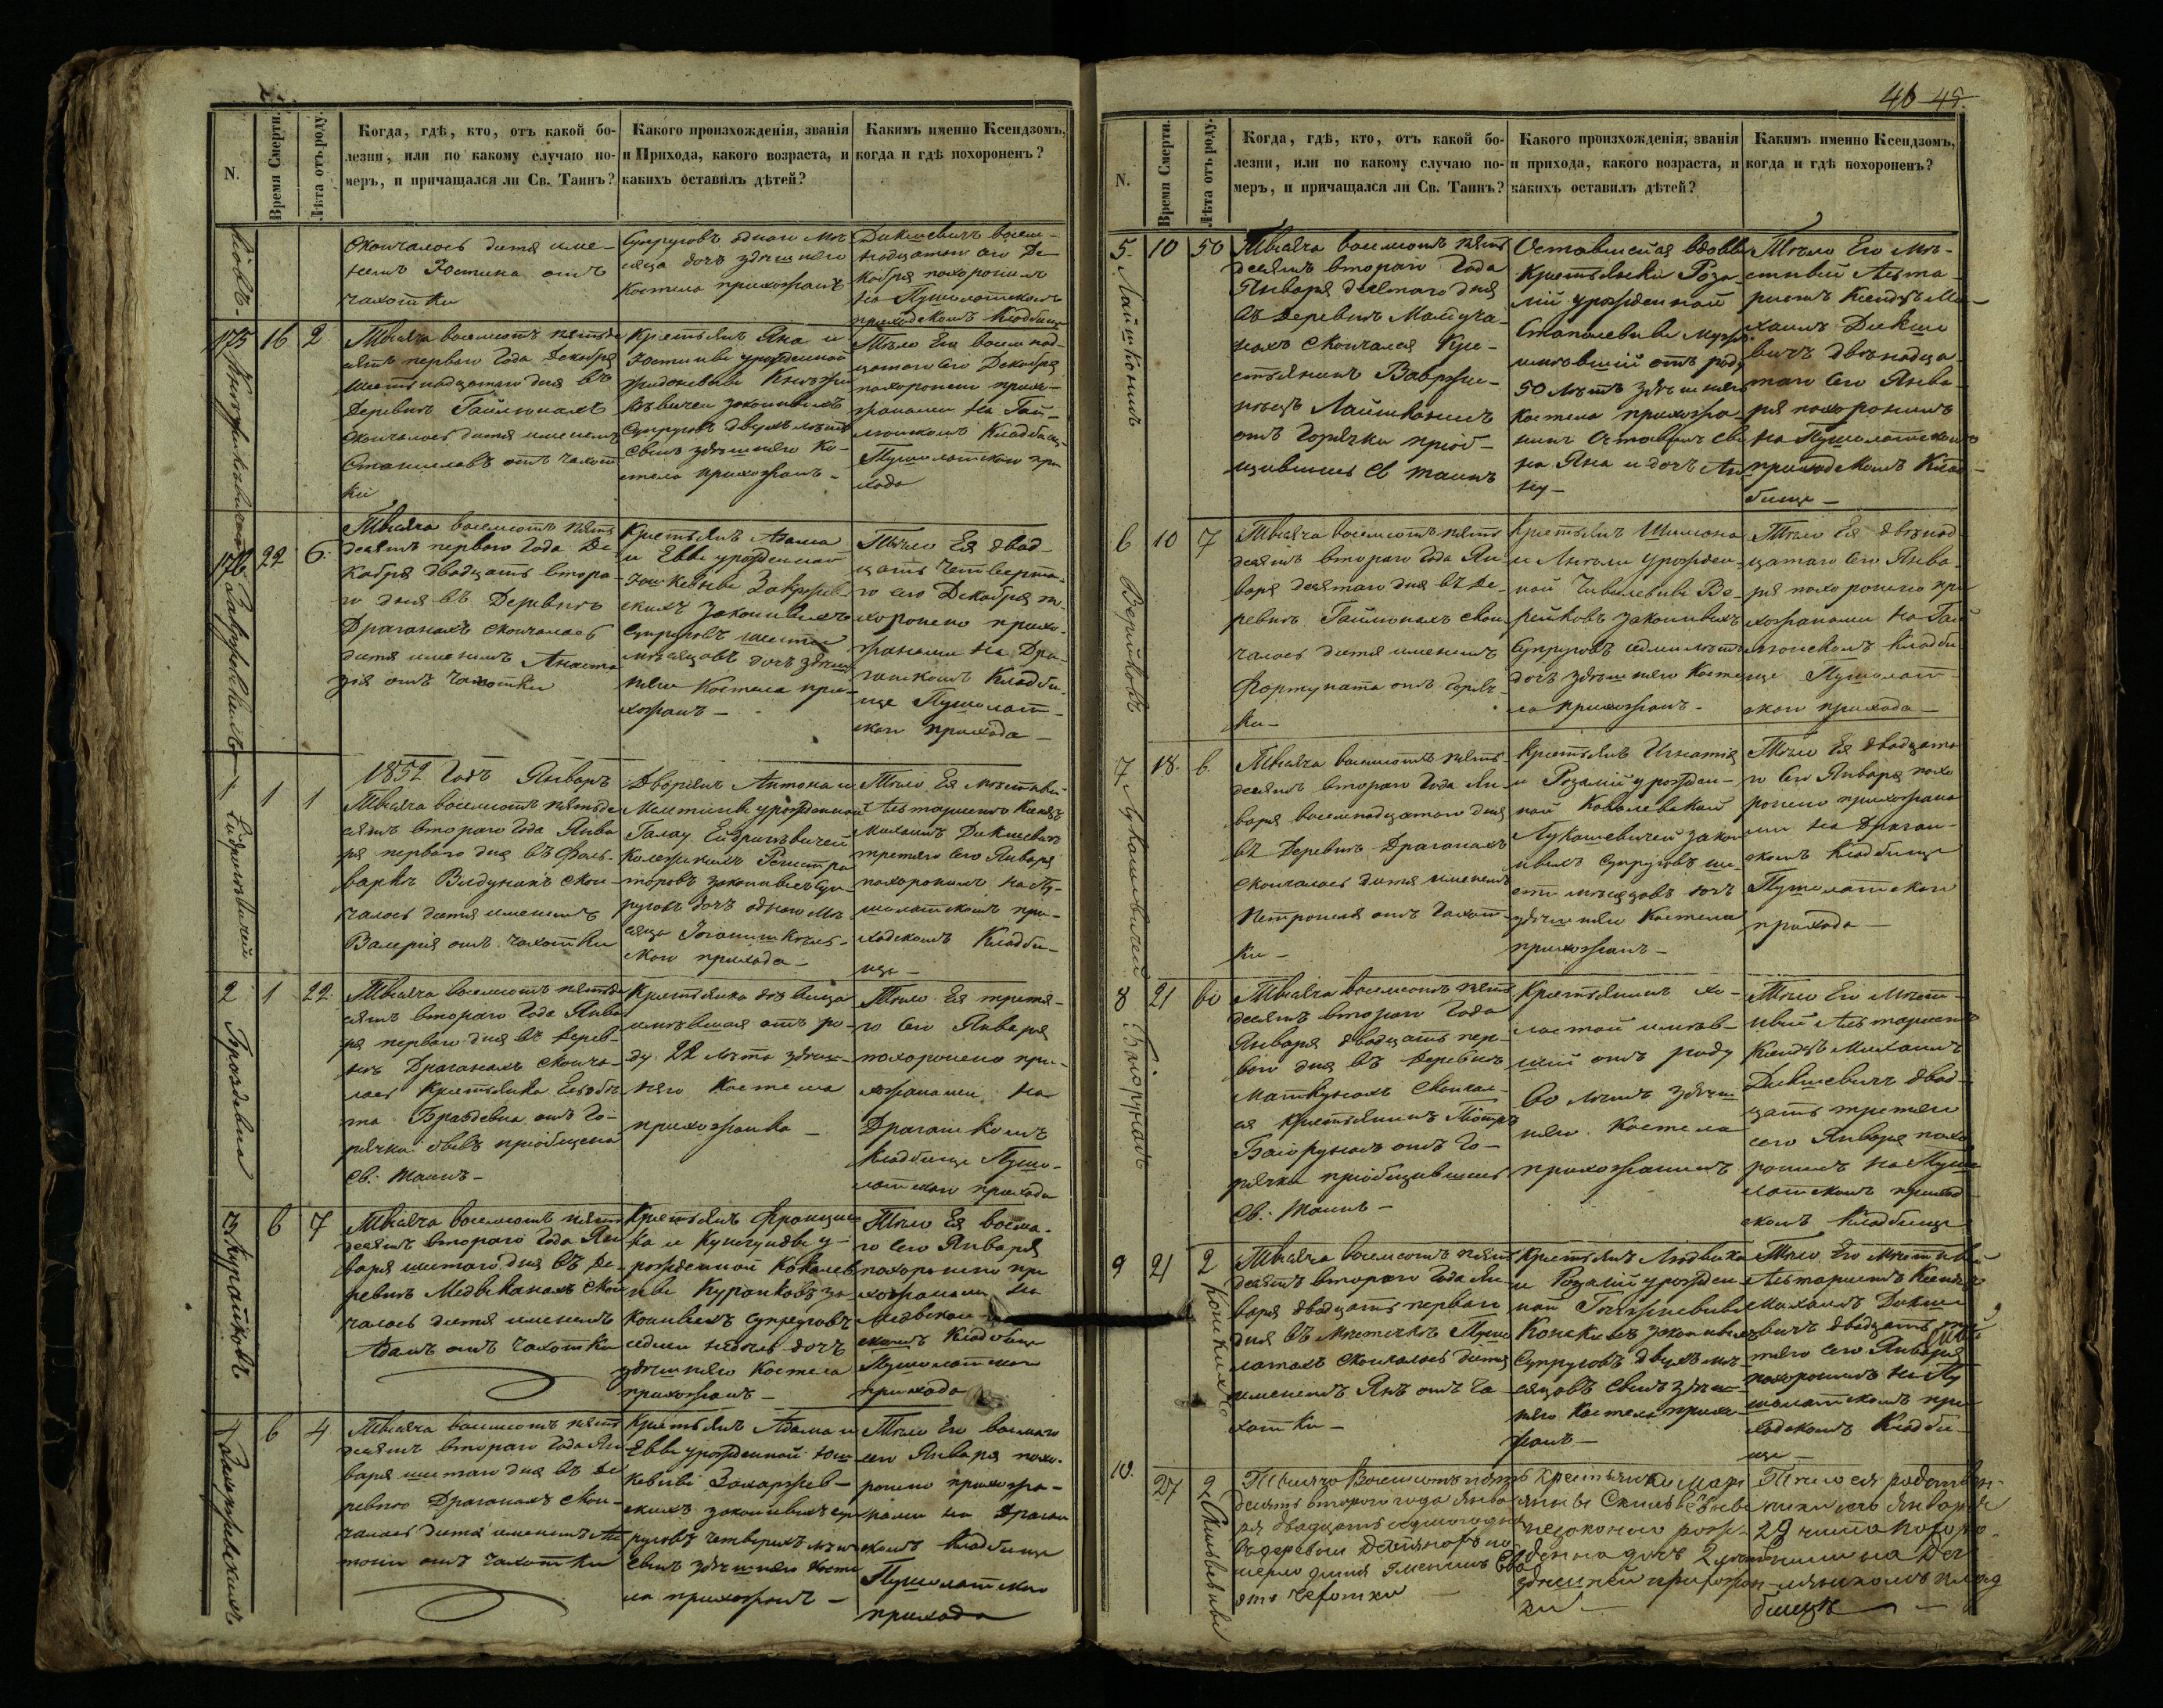 46 45.
N.
Время Смерти.
Лѣта отъ роду.
Когда, гдѣ, кто, отъ какой бо-
лезни, или по какому случаю по-
меръ, и причащался ли Св. Таинъ?
Какого произхожденія, званія
и Прихода, какого возраста, и
какихъ оставилъ дѣтей?
Какимъ именно Ксендзомъ,
когда и гдѣ похороненъ?
скончалось дитя име-
немъ Юстина отъ
чахотки
Супруговъ одного мѣ-
сяца дочь здѣшняго
Костела прихожанъ
Дикшевичъ восем-
надцатаго сего Де
кабря похоронилъ
на Пушолатскомъ
приходскомъ Кладбище
175
16
2
Тысяча восемсотъ пятьде
сятъ перваго Года Декабря
шестнадцатаго дня въ
Деревнѣ Гайлюнахъ
скончалось дитя именемъ
Станиславъ отъ чахот
ки
Крестьянъ Яна и
Юстины урожденной
законныхъ
Супруговъ двухъ лѣтъ
сынъ здѣшняго Ко-
стела прихожанъ -
Тѣло Его восемнад-
цатаго сего Декабря
похоронено прихо-
жанами на Гай-
люнскомъ Кладбищѣ
Пушолатскаго при
хода
176
22
6.
Тысяча восемсотъ пять
десятъ перваго Года Де
кабря двадцать втора-
го дня въ Деревнѣ
Драганахъ скончалось
дитя именемъ Анаста
зія отъ чахотки
Крестьянъ Адама
и Евы урожденной
Юшкевичевы
законныхъ
Супруговъ шести
мѣсяцовъ дочь здѣш
няго Костела при-
хожанъ -
Тѣло Ея двад-
цать четверта-
го сего Декабря по-
хоронено прихо-
жанами на Дра-
ганскомъ Кладби-
ще Пушолат-
скаго прихода -
1852 Годъ Январь
1
1
1
Тысяча восемсотъ пятьде
сятъ втораго Года Янва
ря перваго дня въ Фоль-
варкѣ Видунахъ скон-
чалось дитя именемъ
Валерія отъ чахотки
Дворянъ Антона и
урожденной
Колежскихъ Регистра
торовъ законныхъ Суп-
руговъ дочь одного мѣ
сяца
прихода -
Тѣло Ея мѣстный
Альтариста Ксендзъ
Михаилъ Дикшевичъ
третяго сего Января
похоронилъ на Пу-
шолатскомъ при-
ходскомъ Кладби-
ще -
2
1
22.
Тысяча восемсотъ пятьде
сятъ втораго Года Янва
ря перваго дня въ Дерев-
нѣ Драганахъ сконча-
лась Крестьянка Елзбѣ
та отъ Го-
рячки бывъ пріобщена
Св. Таинъ -
Крестьянка дѣвица
имѣвшая отъ ро-
ду 22 лѣта здѣш-
няго Костела
прихожанка -
Тѣло Ея третя-
го сего Января
похоронено при-
хожанами на
Драганскомъ
Кладбище Пушо-
латскаго прихода
3
6
7
Тысяча восемсотъ пять
десятъ втораго Года Ян
варя шестаго дня въ Де-
ревнѣ Медвѣканахъ скон
чалось дитя именемъ
Адамъ отъ чахотки
Крестьянъ Францис
ка и Кунегунды у-
рожденной Ковалев
за
конныхъ супруговъ
седми недѣль дочь
здѣшняго Костела
прихожанъ -
Тѣло Ея восьма-
го сего Января
похоронено при
хожанами на
Медвѣкан-
скомъ Кладбище
Пушолатскаго
прихода
4
6
4
Тысяча восемсотъ пять
десятъ втораго Года Ян
варя шестаго дня въ Де
ревнѣ Драганахъ скон-
чалось дитя именемъ Ан
тони отъ чахотки
Крестьянъ Адама и
Евы урожденной Юш
законныхъ суп
руговъ четырехъ
сынъ здѣшняго Косте
ла прихожанъ -
Тѣло Его восьмаго
сего Января похо-
ронено прихожа-
нами на Драган
скомъ Кладбище
Пушолатскаго
прихода
N.
Время Смерти.
Лѣта отъ роду.
Когда, гдѣ, кто, отъ какой бо-
лезни, или по какому случаю по-
меръ, и причащался ли Св. Таинъ?
Какого произхожденія, званія
и прихода, какого возраста, и
какихъ оставилъ дѣтей?
Какимъ именно Ксендзомъ,
когда и гдѣ похороненъ?
5.
10
50
Тысяча восемсотъ пять
десятъ втораго Года
Января десятаго дня
въ Деревнѣ
скончался Кре-
стьянинъ Вавржи-
нецъ
отъ Горячки пріоб-
щившись Св Таинъ
Оставшейся вдовы
Крестьянки Роза-
ліи урожденной
мужъ
имѣвшій отъ роду
50 лѣтъ здѣшняго
Костела прихожа-
нинъ оставилъ сы
на Яна и дочь Ан
ну -
Тѣло Его мѣ-
стный Альта-
ристъ Ксендзъ Ми-
хаилъ Дикше
вичъ двѣнадца-
таго сего Янва-
ря похоронилъ
на Пушолатскомъ
приходскомъ Клад-
бище -
6
10
7
Тысяча восемсотъ пять
десятъ втораго Года Ян
варя десятаго дня въ Де-
ревнѣ Гайлюнахъ скон
чалось дитя именемъ
Фортуната отъ Горяч-
ки -
Крестьянъ Шимона
и урожден-
ной Ве-
рейковъ законныхъ
Супруговъ седми лѣтъ
дочь здѣшняго Косте
ла прихожанъ -
Тѣло Ея двѣнад-
цатаго сего Янва-
ря похоронено при
хожанами на Гай
люнскомъ Кладби
ще Пушолат-
скаго прихода -
7
18.
6.
Тысяча восемсотъ пять-
десятъ втораго Года Ян-
варя восемнадцатаго дня
въ Деревнѣ Драганахъ
скончалось дитя именемъ
Петронеля отъ Чахот-
ки -
Крестьянъ Игнатія
и Розаліи урожден-
ной Ковалевской
Лукашевичей закон
ныхъ супруговъ ше-
сти мѣсяцовъ дочь
здѣшняго Костела
прихожанъ -
Тѣло Ея двадцата
го сего Января похо
ронено прихожана
ми на Драган-
скомъ Кладбище
Пушолатскаго
прихода -
8
21
60
Тысяча восемсотъ пять
десятъ втораго Года
Января двадцать пер-
ваго дня въ Деревнѣ
Маткунахъ скончал-
ся Крестьянинъ Петръ
отъ Го-
рячки пріобщившись
Св. Таинъ -
Крестьянинъ хо-
лостой имѣв-
шій отъ роду
60 лѣтъ здѣш
няго Костела
прихожанинъ
Тѣло Его мѣст-
ный Альтаристъ
Ксендзъ Михаилъ
Дикшевичъ двад-
цать третяго
сего Января похо
ронилъ на Пушо
латскомъ приход-
скомъ Кладбище
9
21
2
Тысяча восемсотъ пять
десятъ втораго Года Ян-
варя двадцать перваго
дня въ мѣстечкѣ Пушо
латахъ скончалось дитя
именемъ Янъ отъ ча-
хотки -
Крестьянъ Людвика
и Розаліи урожден
ной
законныхъ
Супруговъ двухъ мѣ-
сяцовъ сынъ здѣш-
няго Костела прихо-
жанъ -
Тѣло Его мѣстный
Альтаристъ Ксендзъ
Михаилъ Дикше
вичъ двадцать тре
тяго сего Января
похоронилъ на Пу
шолатскомъ при
ходскомъ Кладби-
ще -
10.
27
2
Тысячо Восемсотъ пять
десятъ второго года Янва
ря двадцать седмого дня
въ деревни по
мерло дитя Именемъ Ева
отъ Чехотки -
Крестьянки Мари
яны
незаконо рож-
денна дочь 2 лѣтъ
здешней прихожан-
ки -
Тѣло ея родствен-
ники сего Января
29 числа похоро-
нили на
клад
бищѣ -